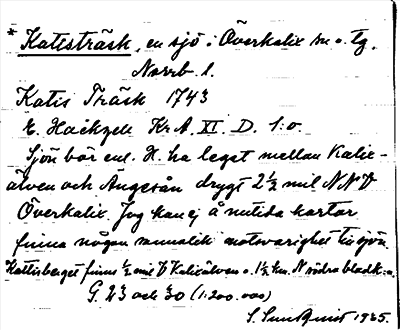 * Katisträsk, en sjö i Överkalix sn o. tg,
Norrb. l.
Katis Träsk 1743
E. Hackzell Kr.A. XI. D. 1:o.
Sjön bör enl. H. ha legat mellan Kalix-
älven och Ängesån drygt 2 1/2 mil NNV
Överkalix. Jag kan ej å nutida kartor
finna någon namnlik motsvarighet till sjön.
Kattisberget finns 1/2 mil V Kalixälven o. 1 1/2 km. N södra bladk.
G. 23 och 30 (1:200.000)
S. Sundquist 1925.